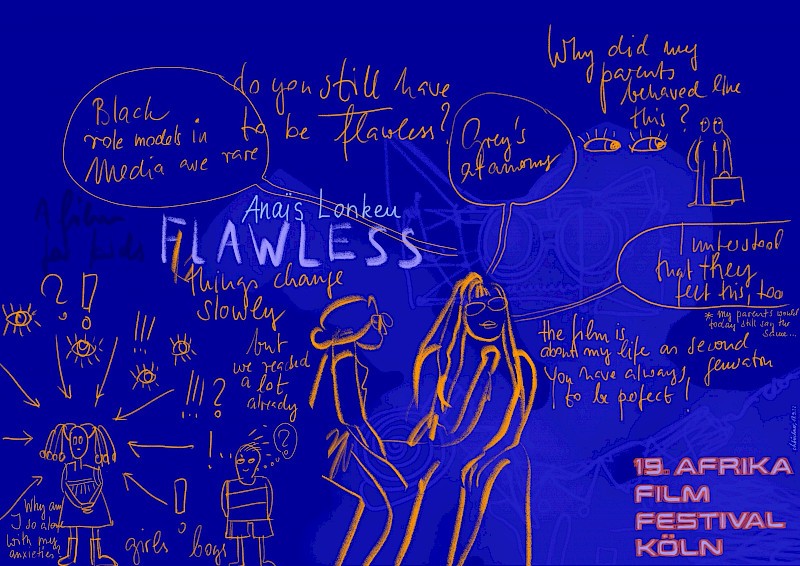 Why did my
parents
behaved like
this ?
do you still have
to be flawless?
Black
role models in
Media are rare
Grey's
atanomy
Anaïs Lonkeu
FLAWLESS
things change
slowly
but
we reached
a lot
already
I understood
that they
felt this, too
* my parents would
today still say the
same...
the film is
about my life as second
generation
You have always
to be perfect !
? !
!!!
!!! ?
?
!
!
Why am
I so alone
with my
anxieties?
girls
boys
19. AFRIKA
FILM
FESTIVAL
KÖLN